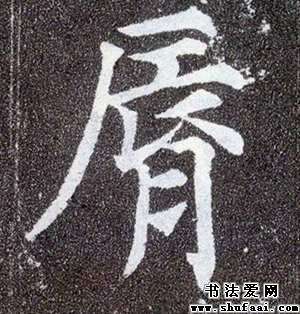 脣
书法爱网
www.shufaai.com